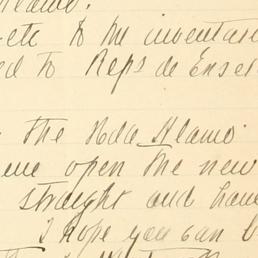 etc to the inventari
ed to Reps de Enser
the Hda Alamo.
me open the new
straight and have
I hope you can b